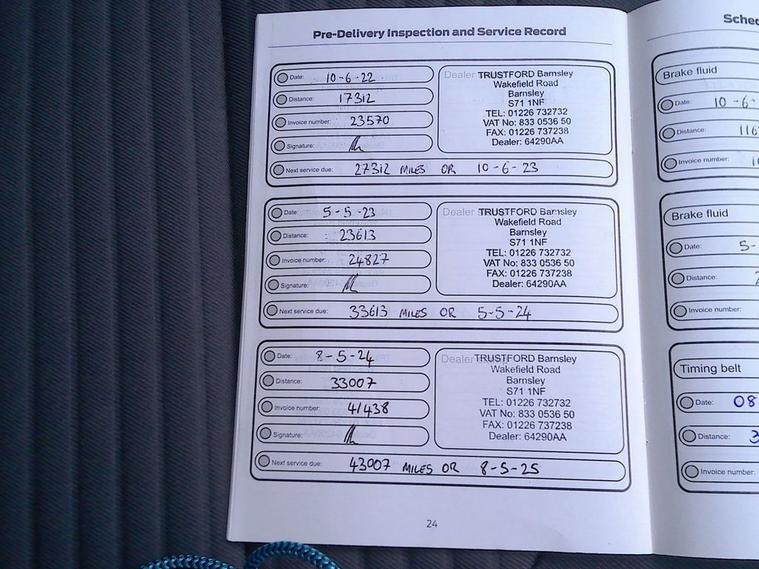 Pre-Delivery Inspection and Service Record
Date: 10-6-22
Distance: 17312
Invoice number: 23570
Signature:
Next service due: 27312 MILES OR 10-6-23
Dealer TRUSTFORD Barnsley
Wakefield Road
Barnsley
S71 1NF
TEL: 01226 732732
VAT No: 833 0536 50
FAX: 01226 737238
Dealer: 64290AA
Date: 5-5-23
Distance: 23613
Invoice number: 24827
Signature:
Next service due: 33613 MILES OR 5-5-24
Dealer TRUSTFORD Barnsley
Wakefield Road
Barnsley
S71 1NF
TEL: 01226 732732
VAT No: 833 0536 50
FAX: 01226 737238
Dealer: 64290AA
Date: 8-5-24
Distance: 33007
Invoice number: 41438
Signature:
Next service due: 43007 MILES OR 8-5-25
Dealer TRUSTFORD Barnsley
Wakefield Road
Barnsley
S71 1NF
TEL: 01226 732732
VAT No: 833 0536 50
FAX: 01226 737238
Dealer: 64290AA
24
Brake fluid
Date: 10-6-
Distance: 116
Invoice number:
Brake fluid
Date: 5-
Distance:
Invoice number:
Timing belt
Date: 08
Distance: 3
Invoice number: